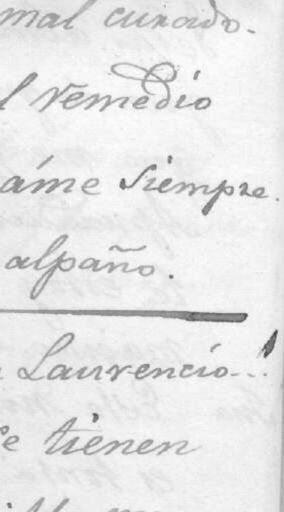 mal curado.
l remedio
áme siempre.
alpaño.
Laurencio...!
e tienen